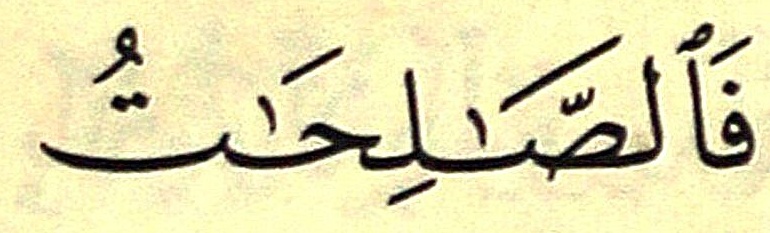 فَٱلصَّـٰلِحَـٰتُ